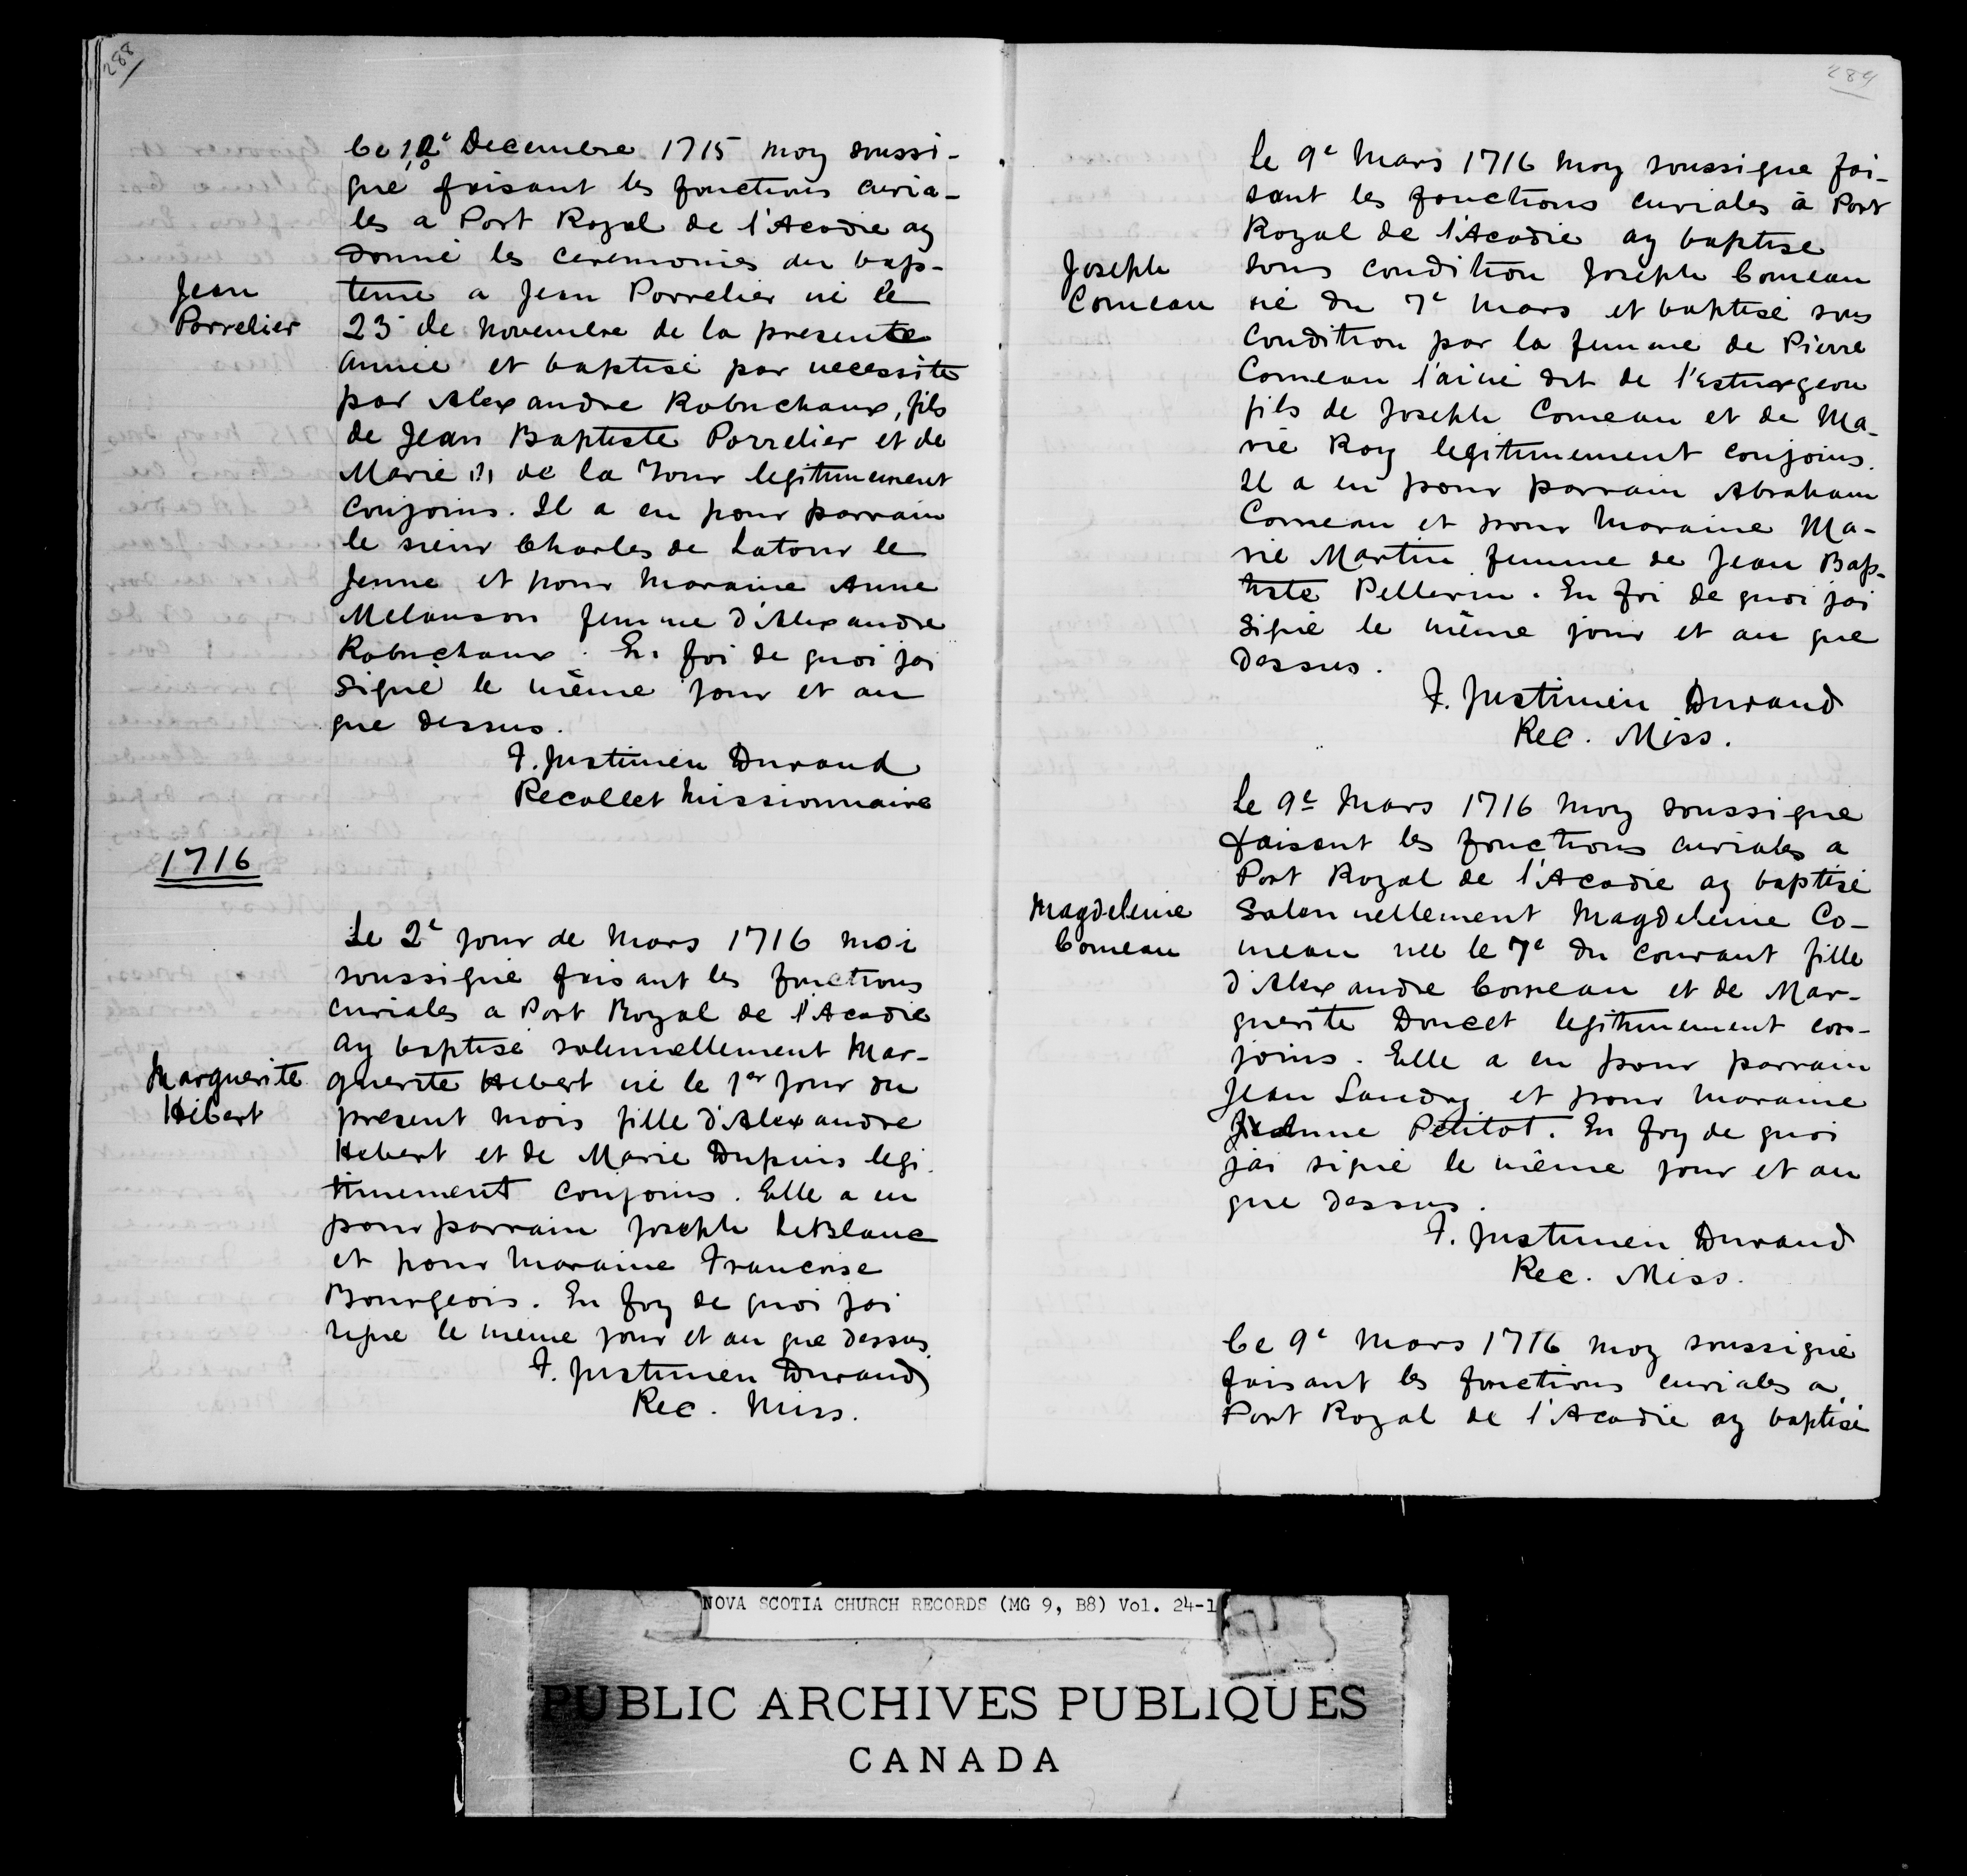 288
Ce 10e Decembre 1715 moy soussi-
gné faisant les fonctions curia-
les a Port Royal de l'Acadie ay
donné les ceremonies du bap-
Jean
Porrelier
teme a Jean Porrelier né le
23 de novembre de la presente
année et baptisé par necessite
par Alexandre Robuchaux, fils
de Jean Baptiste Porrelier et de
Marie de la Tour legitimement
conjoins. Il a eu pour parrain
le sieur Charles de Latour le
Jeune et pour maraine Anne
Melanson femme d'Alexandre
Robuchaux. En foi de quoi jai
signé le même jour et an
que dessus.
F. Justinien Durand
Recollet Missionnaire
1716
Le 2e jour de Mars 1716 moi
soussigné faisant les fonctions
curiales a Port Royal de l'Acadie
ay baptisé solennellement Mar-
Marguerite
Hébert
guerite Hebert né le 1er jour du
present mois fille d'Alexandre
Hebert et de Marie Dupuis legi-
timement conjoins. Elle a eu
pour parrain Joseph LeBlanc
et pour maraine Francoise
Bourgeois. En foy de quoi jai
signe le meme jour et an que dessus.
F. Justinien Durand
Rec. Miss.
289
Le 9e Mars 1716 moy soussigne fai-
sant les fonctions curiales à Port
Royal de l'Acadie ay baptise
Joseph
Comeau
sous condition Joseph Comeau
né du 7e mars et baptisé sous
condition par la femme de Pierre
Comeau l'ainé dit de l'Esturgeon
fils de Joseph Comeau et de Ma-
rie Roy legitimement conjoins.
Il a eu pour parrain Abraham
Comeau et pour maraine Ma-
rie Martin femme de Jean Bap-
tiste Pellerin. En foi de quoi jai
signé le même jour et an que
dessus.
F. Justinien Durand
Rec. Miss.
Le 9e Mars 1716 moy soussigné
faisant les fonctions curiales a
Port Royal de l'Acadie ay baptisé
Magdeleine
Comeau
Solennellement Magdeleine Co-
meau née le 7e du courant fille
d'Alexandre Comeau et de Mar-
guerite Doucet legitimement con-
joins. Elle a eu pour parrain
Jean Landry et pour maraine
Jeanne Petitot. En foy de quoi
jai signé le même jour et an
que dessus.
F. Justinien Durand
Rec. Miss.
Ce 9e Mars 1716 moy soussigné
faisant les fonctions curiales a
Port Royal de l'Acadie ay baptisé
NOVA SCOTIA CHURCH RECORDS (MG 9, B8) Vol. 24-1
PUBLIC ARCHIVES PUBLIQUES
CANADA